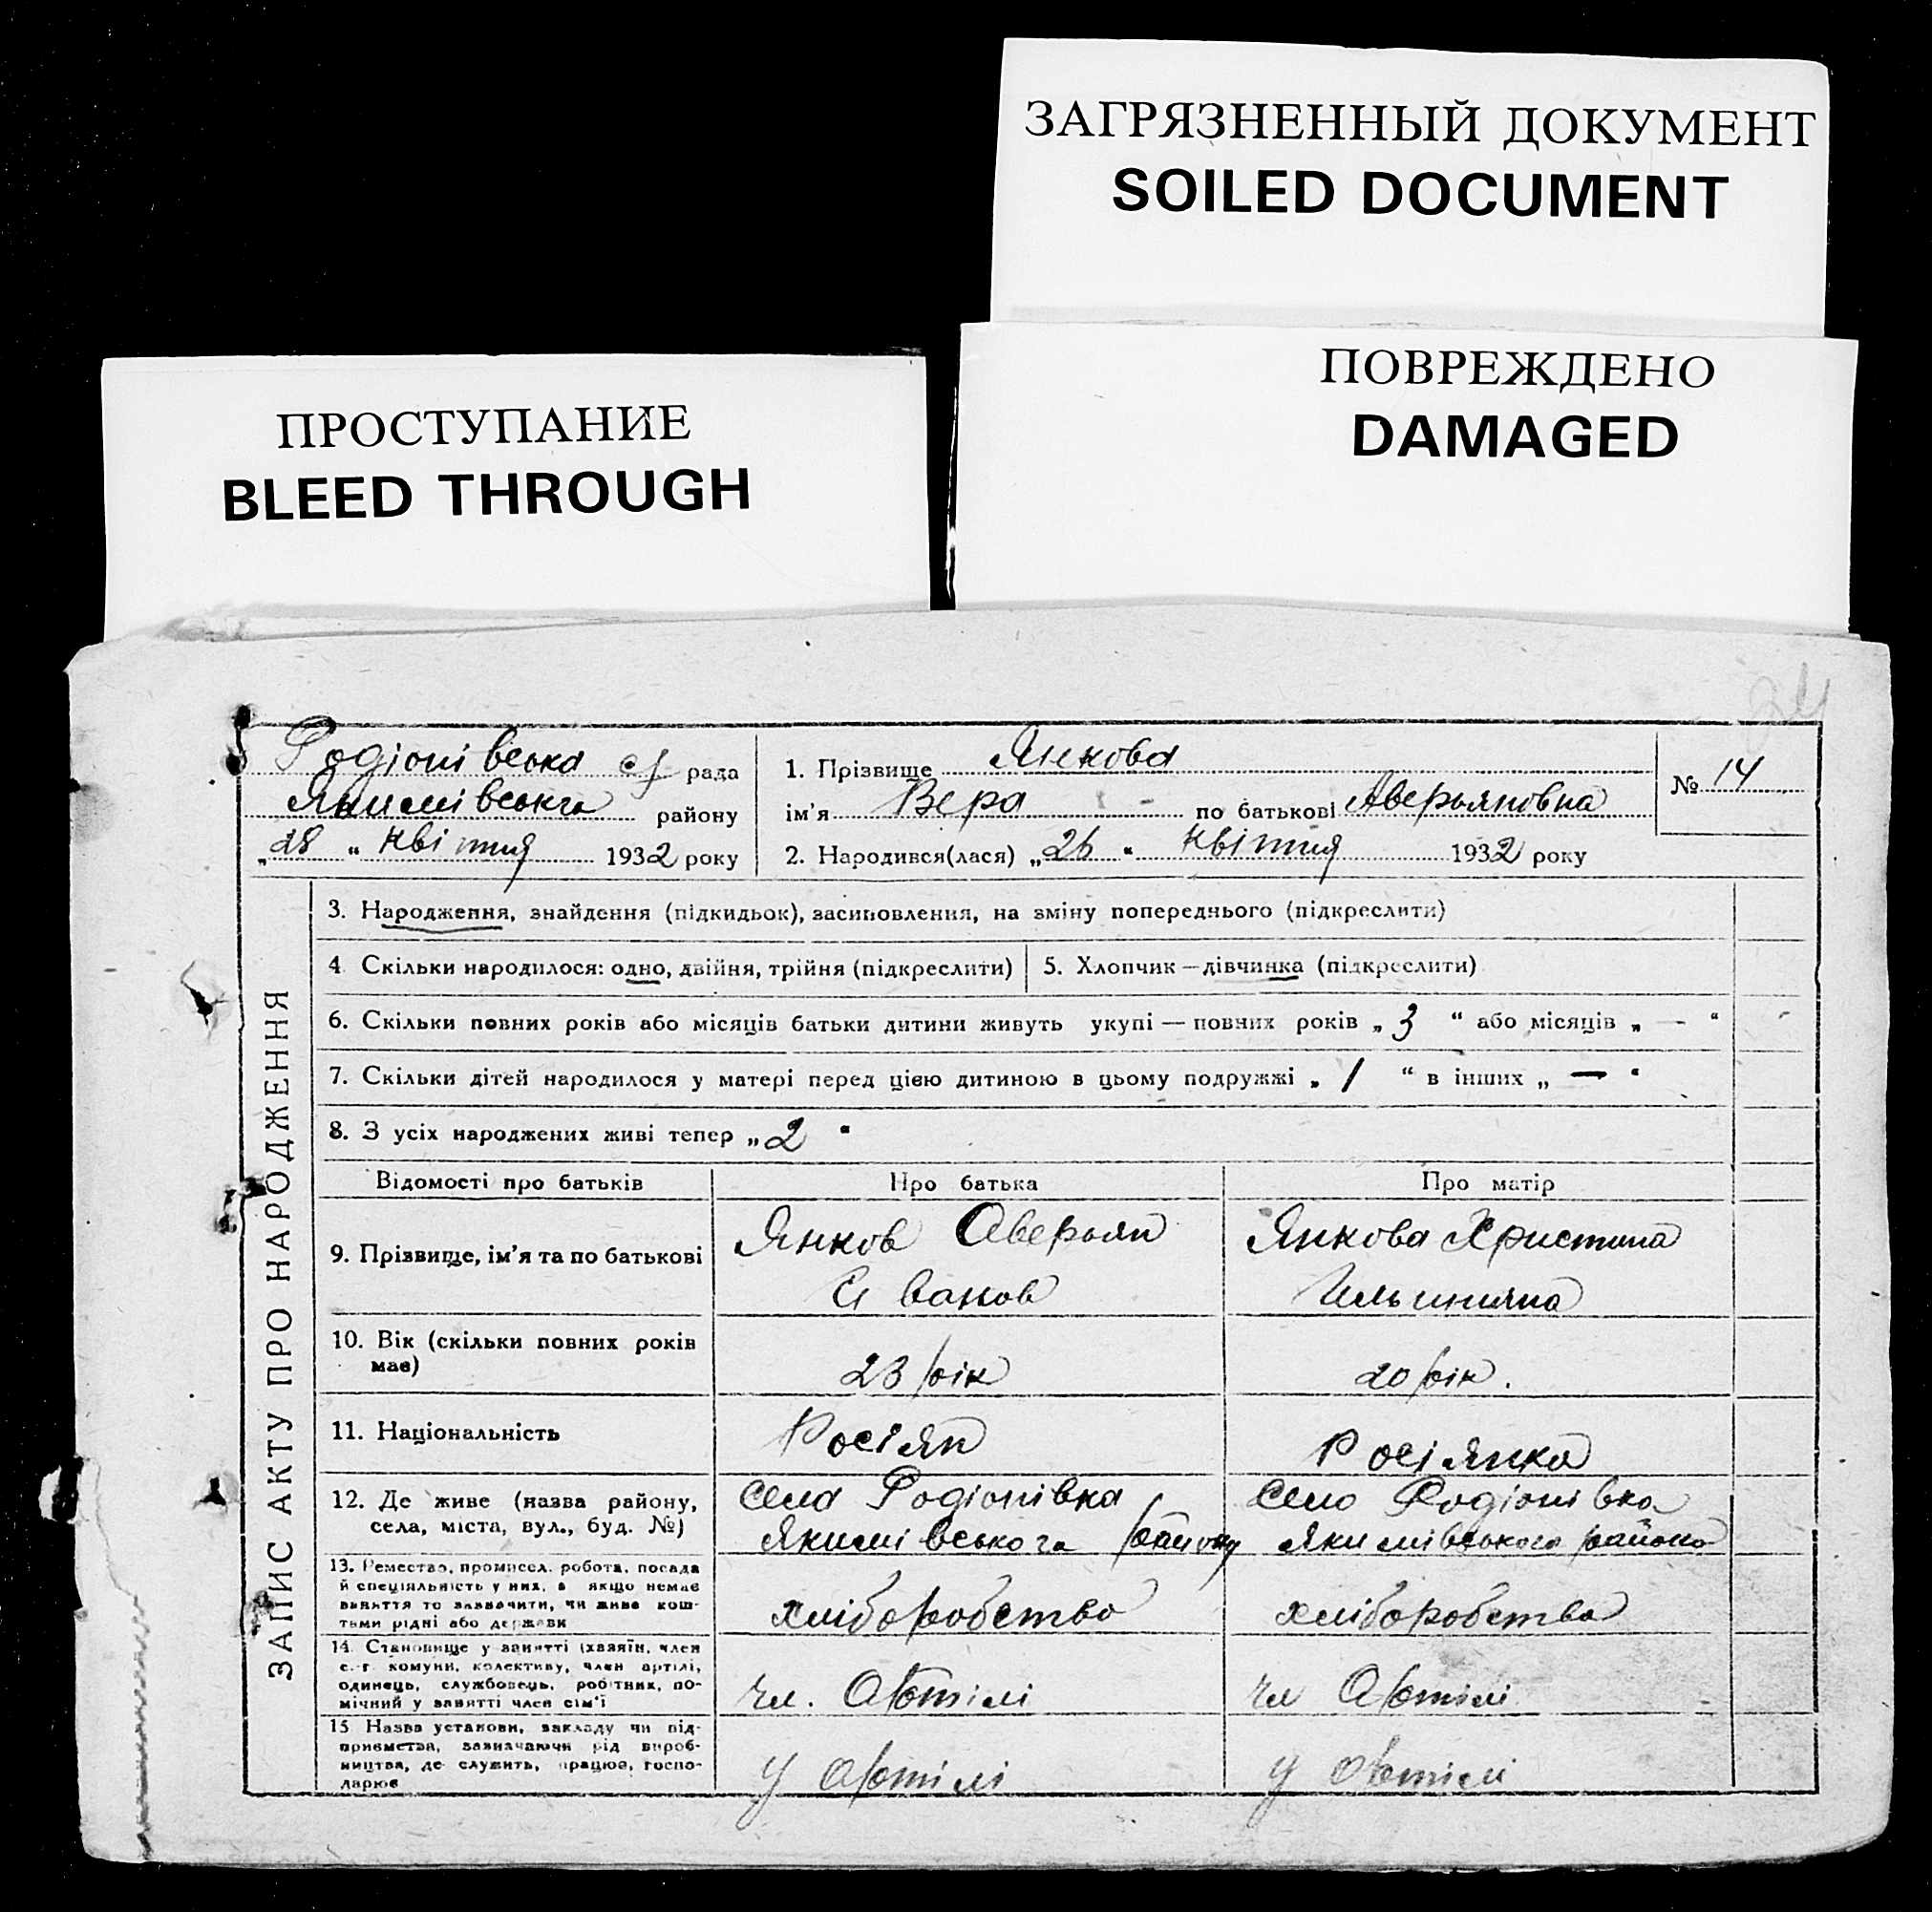 ЗАГРЯЗНЕННЫЙ ДОКУМЕНТ
SOILED DOCUMENT
ПОВРЕЖДЕНО
DAMAGED
ПРОСТУПАНИЕ
BLEED THROUGH
24
Родіонівська с/ рада
Якимівськга району
„28 “ квітня 1932 року
1. Прізвище Янкова
ім'я Вера по батькові Аверьяновна
2. Народився(лася) „26 “ квітня 1932 року
№ 14
ЗАПИС АКТУ ПРО НАРОДЖЕННЯ
3. Народження, знайдення (підкидьок), засиновлення, на зміну попереднього (підкреслити)
4 Скільки народилося: одно, двійня, трійня (підкреслити)
5. Хлопчик — дівчинка (підкреслити)
6. Скільки повних років або місяців батьки дитини живуть укупі — повних років „ 3 “ або місяців „ — “
7. Скільки дітей народилося у матері перед цією дитиною в цьому подружжі „ 1 “ в інших „ — “
8. З усіх народжених живі тепер „ 2 “
Відомості про батьків Про батька Про матір
9. Прізвище, ім'я та по батькові
Янков Аверьян
Иванов
Янкова Христина
Ильинична
10. Вік (скільки повних років
має)
23 рік
20 рік.
11. Національність
Росіян
Росіянка
12. Де живе (назва району,
села, міста, вул., буд. №)
села Родіонівка
Якимівського району
село Родіонівка
Якимівського района
13. Ремество, промисел, робота, посада
й спеціяльність у них, а якщо немає
заняття то зазначити, чи живе кош-
тами рідні або держави
хліборобство
хліборобства
14. Становище у занятті (хазяїн, член
с.-г. комуни, колективу, член артілі,
одинець, службовець, робітник, по-
мічний у занятті член сім'ї
чл. Артілі
чл Артілі
15 Назва установи, закладу чи під-
приємства, зазначаючи рід вироб-
ництва, де служить, працює, госпо-
дарює
У артілі
У артілі